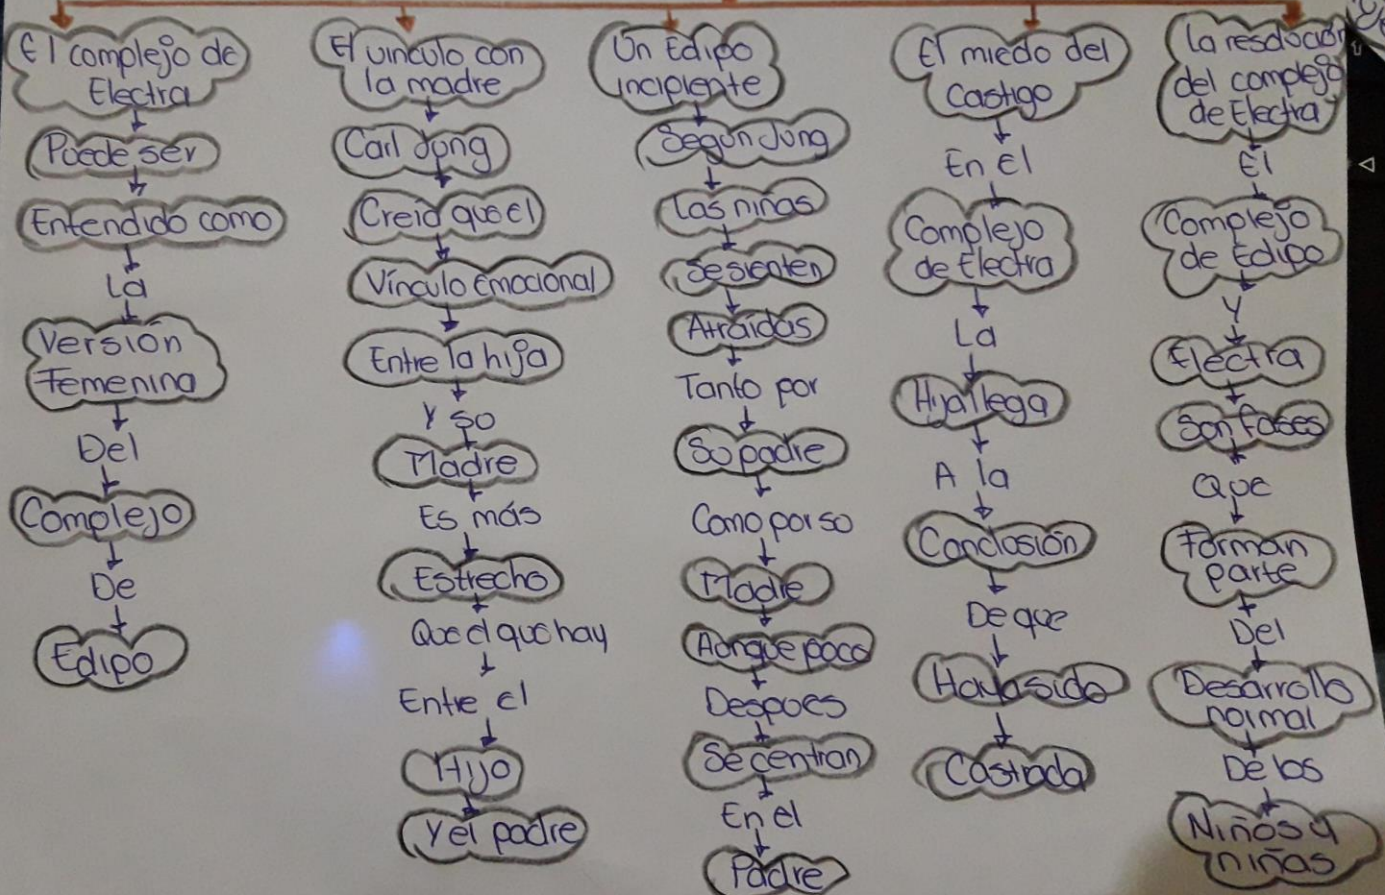 El complejo de
Electra
Puede ser
Entendido como
La
Versión
Femenina
Del
Complejo
De
Edipo
El vinculo con
la madre
Carl Jung
Creia que el
Vínculo Emocional
Entre la hija
Y su
Madre
Es más
Estrecho
Que el que hay
Entre el
Hijo
Y el padre
Un Edipo
incipiente
Segun Jung
Las niñas
Se sienten
Atraídas
Tanto por
Su padre
Como por su
Madre
Aunque poco
Despues
Se centran
En el
Padre
El miedo del
Castigo
En El
Complejo
de Electra
La
Hija llega
A la
Conclusión
De que
Haya sido
Castrada
La resolución
del complejo
de Electra
El
Complejo
de Edipo
Y
Electra
Son fases
Que
Forman
parte
Del
Desarrollo
normal
De los
Niños y
niñas